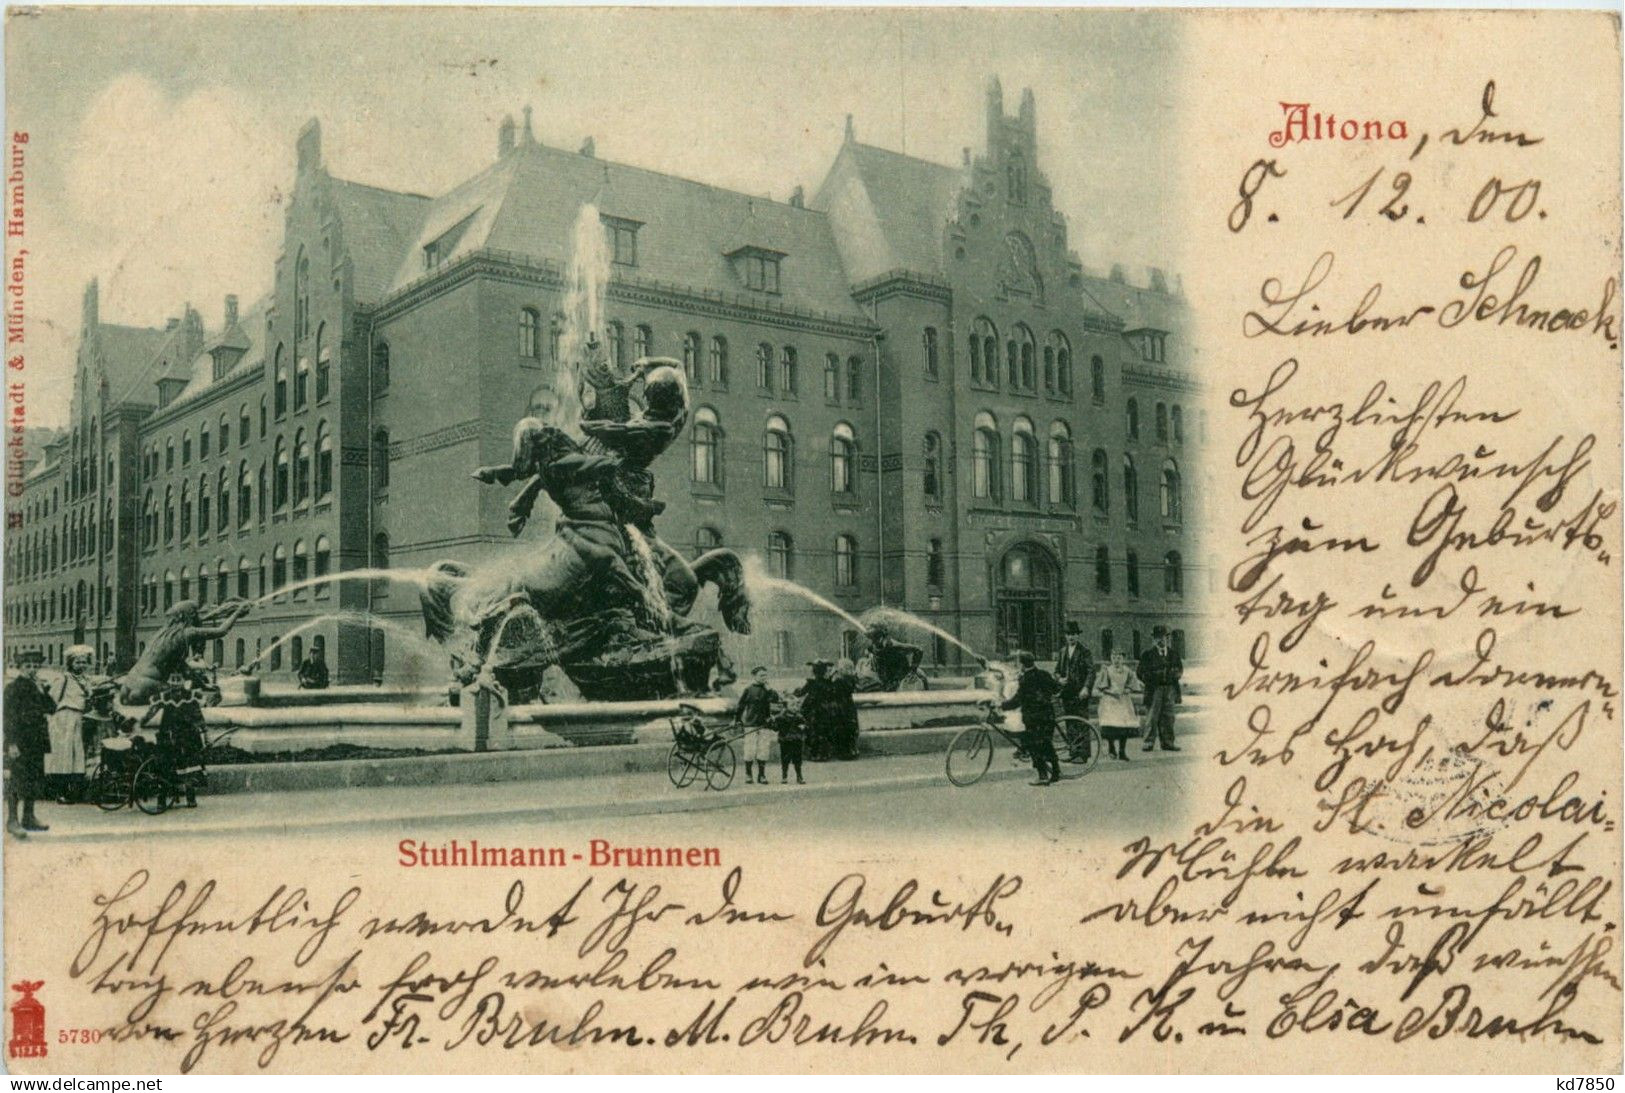 Altona, den
8. 12. 00.
Lieber Schnack.
Herzlichsten
Glückwunsch
zum Geburts„
tag und ein
dreifach donnern„
des Hoch, daß
die St. Nicolai=
Mühle wackelt
aber nicht umfällt.
Hoffentlich werdet Ihr den Geburts„
tag ebenso froh verleben wie im vorigen Jahre, daß wünschen
von Herzen Fr. Bruhn. M. Bruhn. Th, P. K. u Elsa Bruhn
Stuhlmann-Brunnen
M Glückstadt & Münden, Hamburg
5730
delcampe.net
kd7850